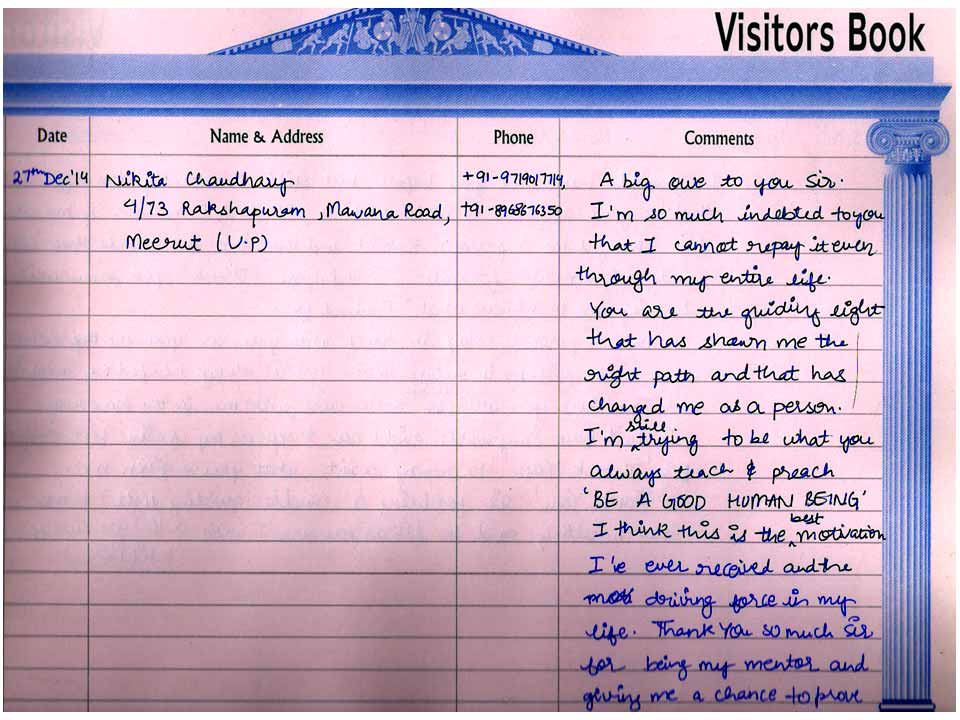 Visitors Book
Date Name & Address Phone Comments
27th Dec'14 Nikita Chaudhary +91-9719017714, A big owe to you Sir.
4/73 Rakshapuram, Mawana Road, +91-8968676350 I'm so much indebted to you
Meerut (U.P) that I cannot repay it even
through my entire life.
You are the guiding light
that has shawn me the
right path and that has
changed me as a person.
I'm still trying to be what you
always teach & preach
'BE A GOOD HUMAN BEING'
I think this is the best motivation
I've ever received and the
driving force in my
life. Thank You so much Sir
for being my mentor and
giving me a chance to prove